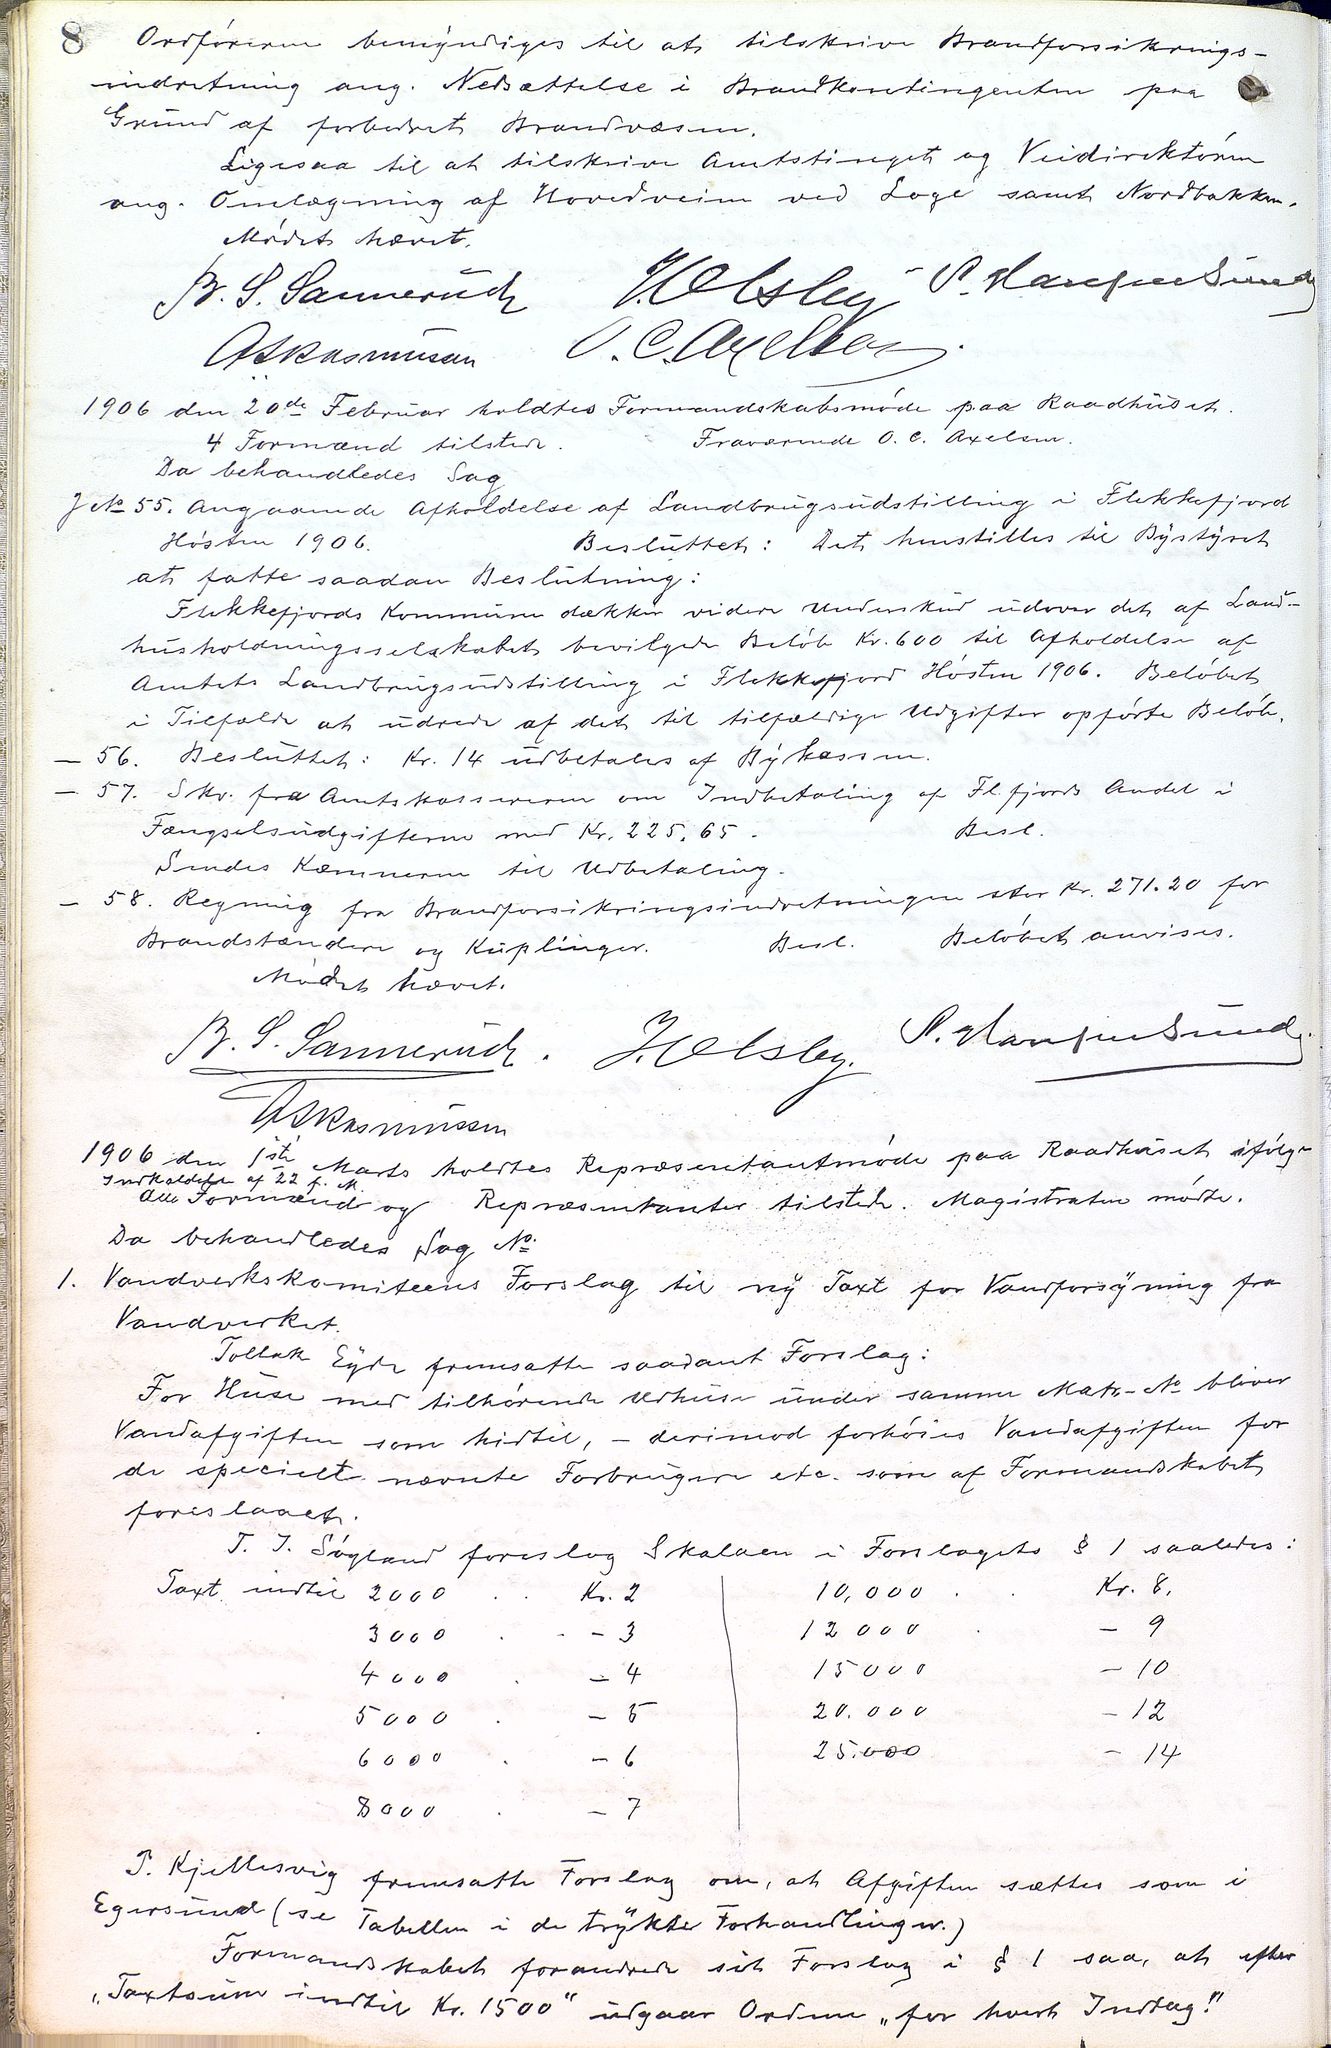 8
Ordføreren bemyndiges til at tilskrive Brandforsikrings-
indretning ang. Nedsættelse i Brandkontingenten paa
Grund af forbedret Brandvæsen.
Ligesaa til at tilskrive Amtstinget og Veidirektøren
ang. Omlægning af Hovedveien ved Loge samt Nordbakken.
Mødet hævet.
B. S. Sannerud J. Olsby P. Hansen Sunde
A S Rasmussen O. C. Axelsen.
1906 den 20de Februar holdtes Formandskabsmøde paa Raadhuset.
4 Formænd tilstede. Fraværende O. C. Axelsen.
Da behandledes Sag
J No 55. Angaaende Afholdelse af Landbrugsudstilling i Flekkefjord
Høsten 1906. Besluttet: Det henstilles til Bystyret
at fatte saadan Beslutning:
Flekkefjords Kommune dækker videre Underskud udover det af Land-
husholdningsselskabet bevilgede Beløb Kr. 600 til Afholdelse af
Amtets Landbrugsudstilling i Flekkefjord Høsten 1906. Beløbet
i Tilfælde at udrede af det til tilfældige Udgifter opførte Beløb.
— 56. Besluttet: Kr. 14 udbetales af Bykassen.
— 57. Skr. fra Amtskassereren om Indbetaling af Fl.fjords Andel i
Fængselsudgifterne med Kr. 225.65. Besl.
Sendes Kæmneren til Udbetaling.
— 58. Regning fra Brandforsikringsindretningen stor Kr. 271.20 for
Brandstændere og Kuplinger. Besl. Beløbet anvises.
Mødet hævet.
B. S. Sannerud. J. Olsby. P. Hansen Sunde.
A S Rasmussen
1906 den 1ste Marts holdtes Repræsentantmøde paa Raadhuset ifølge
Indkaldelse af 22 f. M.
Alle Formænd og Repræsentanter tilstede. Magistraten mødte.
Da behandledes Sag No.
1. Vandverkskomiteens Forslag til ny Taxt for Vandforsyning fra
Vandverket.
Tollak Eyde fremsatte saadant Forslag:
For Huse med tilhørende Udhuse under samme Matr-No bliver
Vandafgiften som hidtil, – derimod forhøies Vandafgiften for
de specielt nævnte Forbrugere etc. som af Formandskabet
foreslaaet.
T. J. Søyland foreslog Skalaen i Forslagets § 1 saaledes:
Taxt indtil 2000 . . Kr. 2 10,000 . . Kr. 8.
3000 . . – 3 12000 . – 9
4000 . – 4 15000 – 10
5000 . – 5 20.000 – 12
6000 . – 6 25.000 – 14
8000 . – 7
P. Kjellesvig fremsatte Forslag om, at Afgiften sættes som i
Egersund (se Tabellen i de trykte Forhandlinger.)
Formandskabet forandrede sit Forslag i § 1 saa, at efter
„Taxtsum indtil Kr. 1500“ udgaar Ordene „for hvert Indtag!“